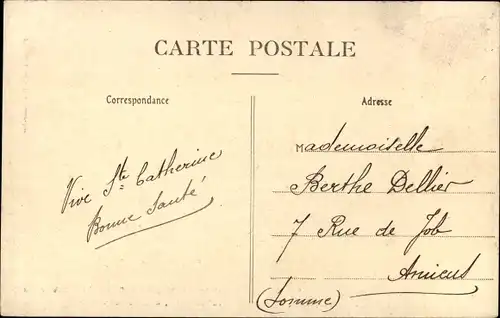 CARTE POSTALE
Correspondance
Vive Ste Catherine
Bonne Santé
Adresse
Mademoiselle
Berthe Dellier
7 Rue de Job
Amiens
(Somme)